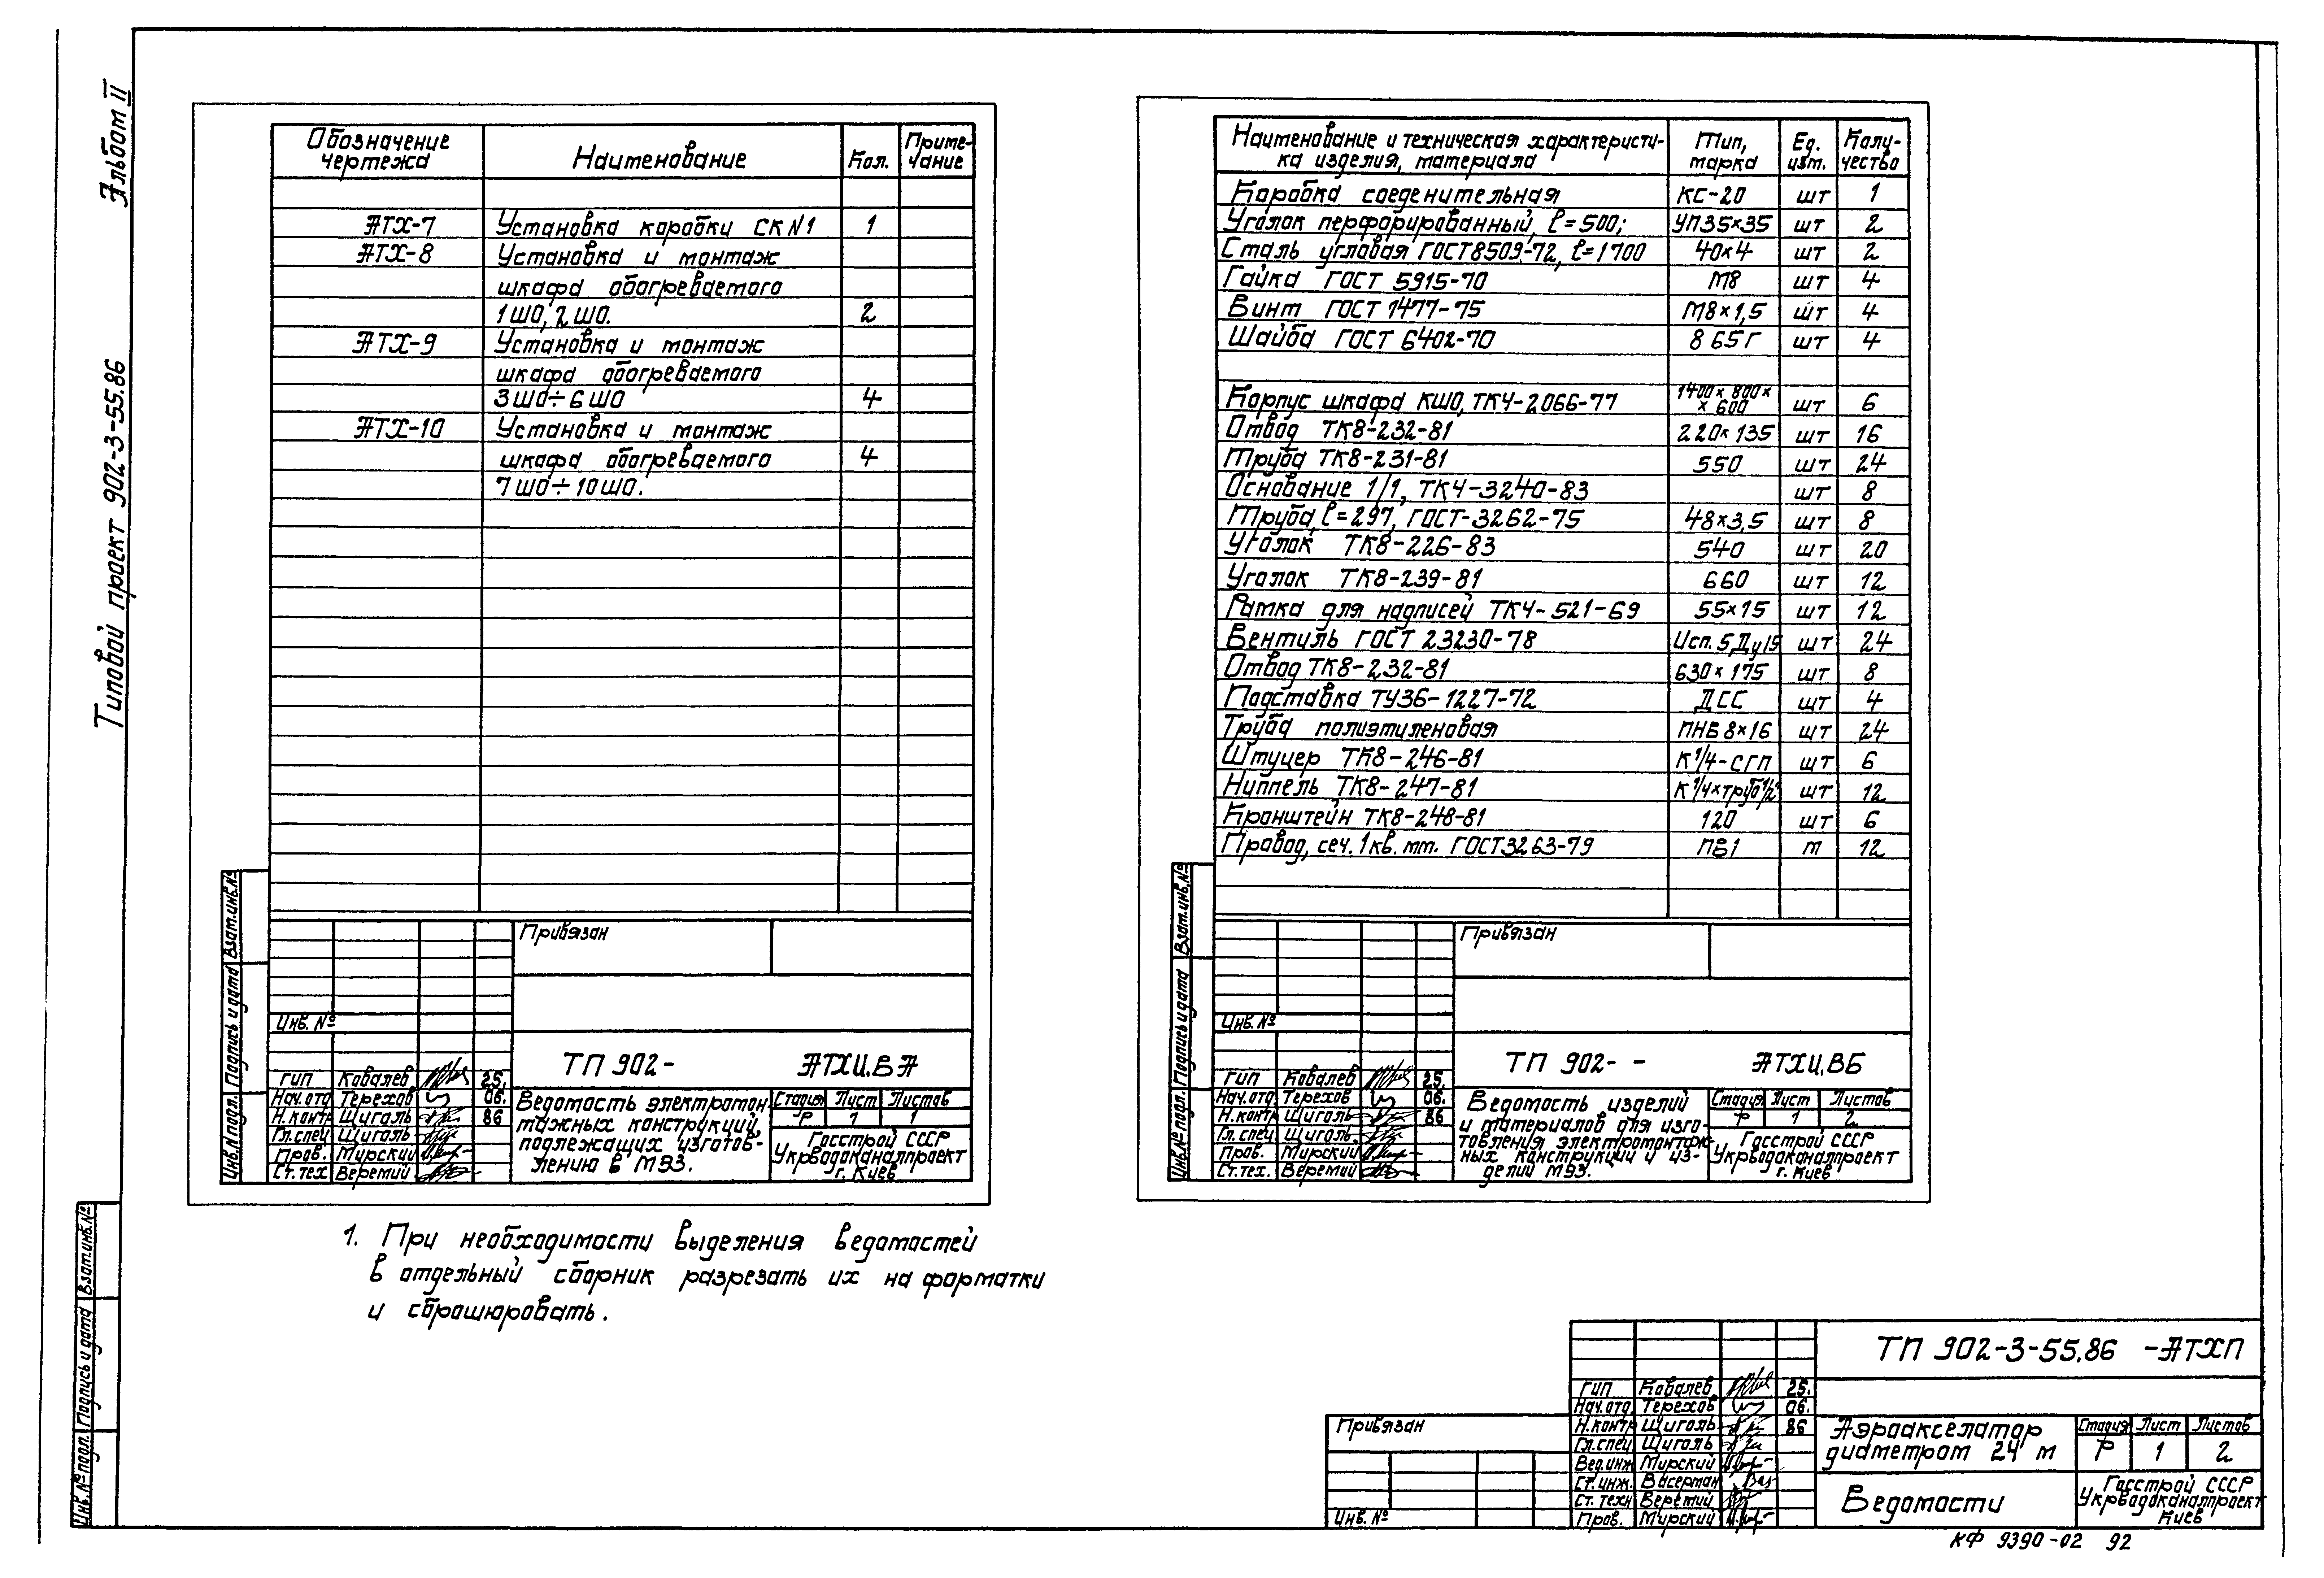 Альбом II
Типовой проект 902-3-55.86
Обозначение чертежа | Наименование | Кол. | Примечание
АТХ-7 | Установка коробки СК№1 | 1
АТХ-8 | Установка и монтаж
шкафа обогреваемого
1ШО, 2ШО. | 2
АТХ-9 | Установка и монтаж
шкафа обогреваемого
3ШО÷6ШО | 4
АТХ-10 | Установка и монтаж
шкафа обогреваемого | 4
7ШО÷10ШО.
Привязан
Инв. №
ТП 902- АТХИ.ВА
ГИП Ковалев 25.
Нач.отд Терехов 06.
Н.контр Щиголь 86
Гл.спец Щиголь
Пров. Мирский
Ст.тех Веремий
Ведомость электромон-
тажных конструкций,
подлежащих изготов-
лению в МЭЗ.
Стадия Лист Листов
Р 1 1
Госстрой СССР
Укрводоканалпроект
г. Киев
Инв.№подл. Подпись и дата Взам.инв.№
Наименование и техническая характеристи-
ка изделия, материала | Тип, марка | Ед. изм. | Коли-
чество
Коробка соеденительная | КС-20 | шт | 1
Уголок перфорированный, ℓ=500; | УП35×35 | шт | 2
Сталь угловая ГОСТ8509-72, ℓ=1700 | 40×4 | шт | 2
Гайка ГОСТ 5915-70 | М8 | шт | 4
Винт ГОСТ 1477-75 | М8×1,5 | шт | 4
Шайба ГОСТ 6402-70 | 8 65Г | шт | 4
Корпус шкафа КШО, ТК4-2066-77 | 1400×800×
×600 | шт | 6
Отвод ТК8-232-81 | 220×135 | шт | 16
Труба ТК8-231-81 | 550 | шт | 24
Основание 1/1, ТК4-3240-83 | шт | 8
Труба, ℓ=297, ГОСТ-3262-75 | 48×3,5 | шт | 8
Уголок ТК8-226-83 | 540 | шт | 20
Уголок ТК8-239-81 | 660 | шт | 12
Рамка для надписей ТК4-521-69 | 55×15 | шт | 12
Вентиль ГОСТ 23230-78 | Исп.5,Ду15 | шт | 24
Отвод ТК8-232-81 | 630×175 | шт | 8
Подставка ТУ36-1227-72 | ДСС | шт | 4
Труба полиэтиленовая | ПНБ 8×16 | шт | 24
Штуцер ТК8-246-81 | К1/4-СГП | шт | 6
Ниппель ТК8-247-81 | К1/4×труб1/2" | шт | 12
Кронштейн ТК8-248-81 | 120 | шт | 6
Провод, сеч. 1кв. мм. ГОСТ3263-79 | ПВ1 | м | 12
Привязан
Инв. №
ТП 902- - АТХИ.ВБ
ГИП Ковалев 25.
Нач.отд Терехов 06.
Н.контр Щиголь 86
Гл.спец. Щиголь
Пров. Мирский
Ст.тех. Веремий
Ведомость изделий
и материалов для изго-
товления электромонтаж-
ных конструкций и из-
делий МЭЗ.
Стадия Лист Листов
Р 1 2
Госстрой СССР
Укрводоканалпроект
г. Киев
Инв.№подл. Подпись и дата Взам.инв.№
1. При необходимости выделения ведомостей
в отдельный сборник разрезать их на форматки
и сброшюровать.
Инв.№подл. Подпись и дата Взам.инв.№
Привязан
Инв. №
ТП 902-3-55.86 -АТХП
ГИП Ковалев 25.
Нач.отд. Терехов 06.
Н.контр Щиголь 86
Гл.спец Щиголь
Вед.инж Мирский
Ст.инж. Васерман
Ст.техн Веремий
Пров. Мирский
Аэроакселатор
диаметром 24 м
Стадия Лист Листов
Р 1 2
Ведомости
Госстрой СССР
Укрводоканалпроект
Киев
КФ 9390-02 92